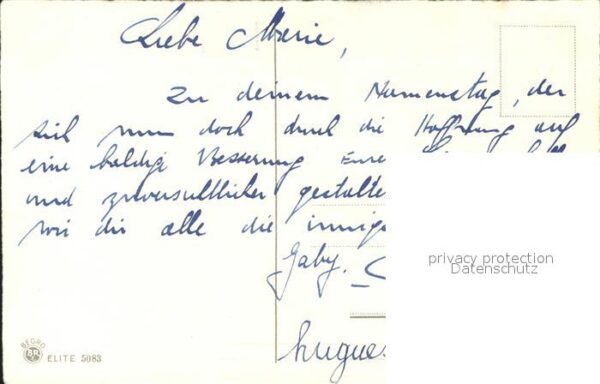 Liebe Marie,
Zu deinem Namenstag, der
sich nun doch durch die Hoffnung auf
eine baldige Besserung Eure
und zuversichtlicher gestalte
wir dir alle die innig
Gaby.
hugue
privacy protection
Datenschutz
BEGRO
ELITE 5083